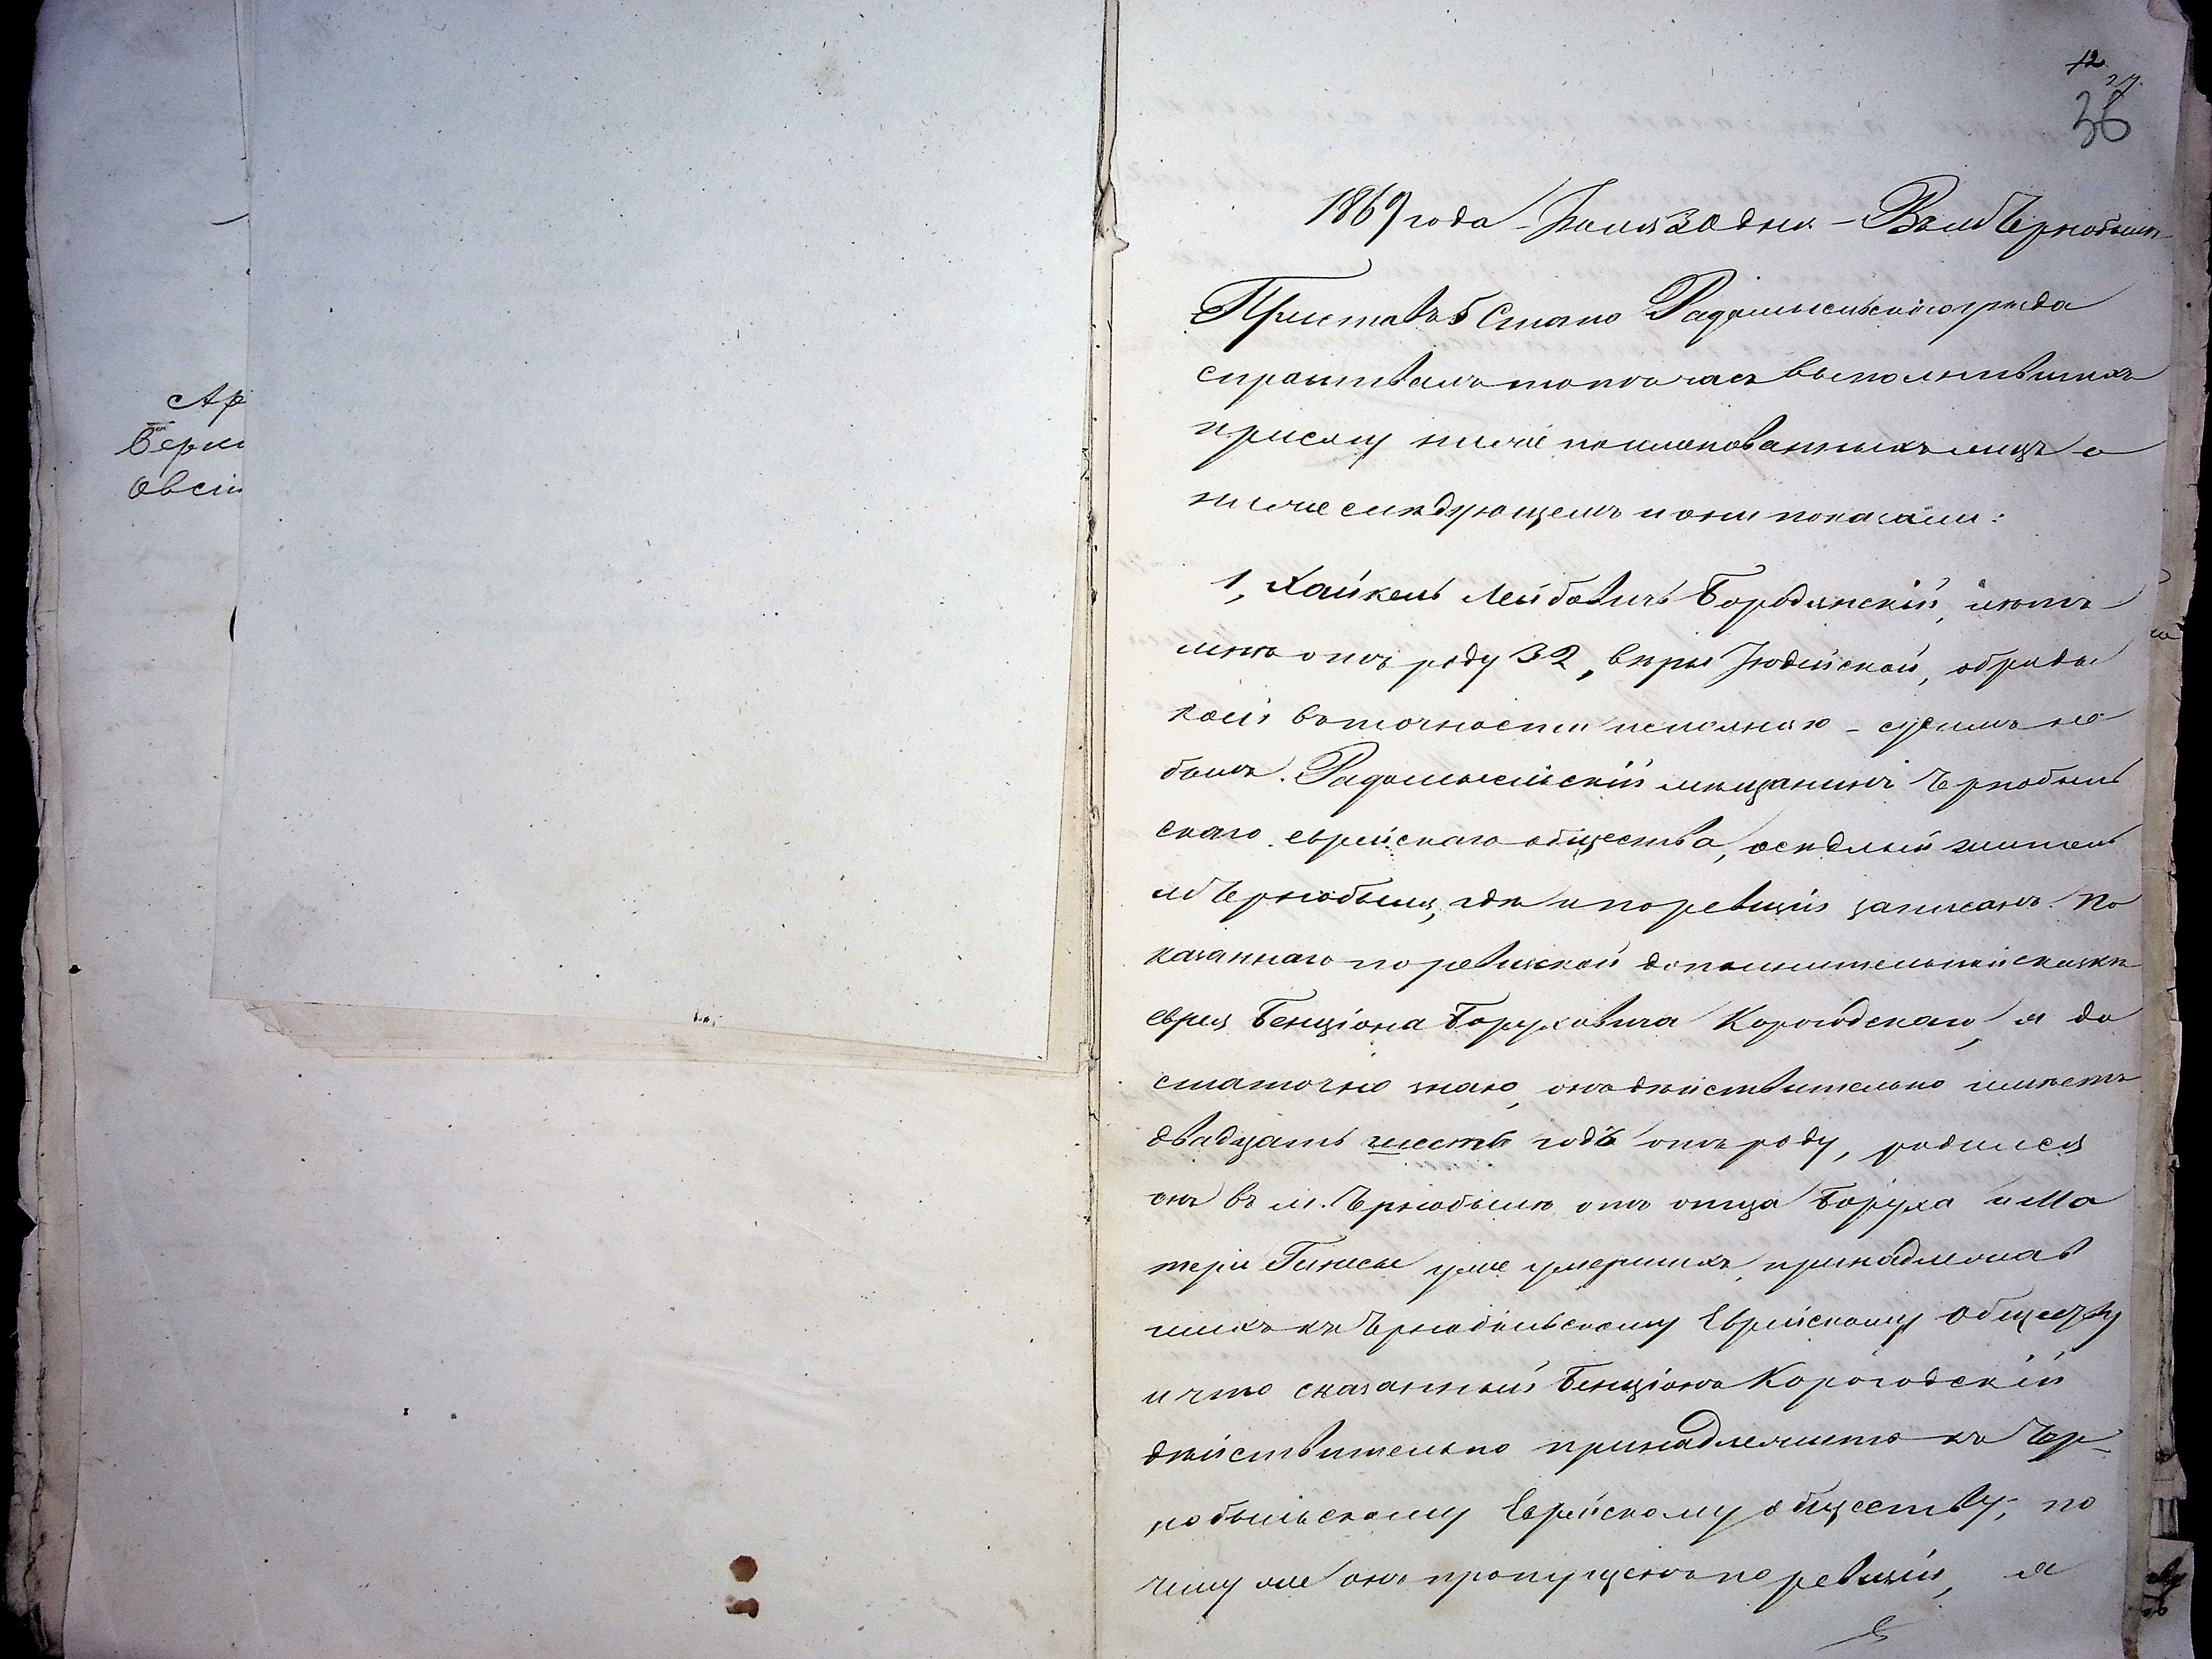 Ар
Берк
Овсій
12
27.
36
1869 года Іюля 30 дня - Въ м Чернобылѣ
Приставъ 5 Стана Радомысльскаго уѣзда
спрашивалъ тотъ часъ выполнившихъ
присягу ниже поименованныхъ лицъ о
ниже слѣдующемъ и они показали:
1, Хайкель Лейбовичъ Бородянскій,
лѣтъ отъ роду 32, вѣры Іюдейской, обряды
коей въ точности исполняю - судимъ не
былъ. Радомысльскій мѣщанинъ Чернобыль
скаго еврейскаго общества, осѣдлый житель
м Чернобыля, гдѣ и по ревизіи записанъ. По
казаннаго по ревизской дополнительной сказкѣ
еврея Бенціона Боруховича Корогодскаго, я до
статочно знаю, онъ дѣйствительно имѣетъ
двадцать шесть годъ отъ роду, родился
онъ въ м. Чернобылѣ отъ отца Боруха и Ма
тери Гинесы уже умершихъ, принадлежав
шихъ къ Чернобыльскому Еврейскому Обществу
и что сказанный Бенціонъ Корогодскій
дѣйствительно принадлежитъ къ Чер-
нобыльскому Еврейскому обществу, по
чему же онъ пропущенъ по ревизіи, я